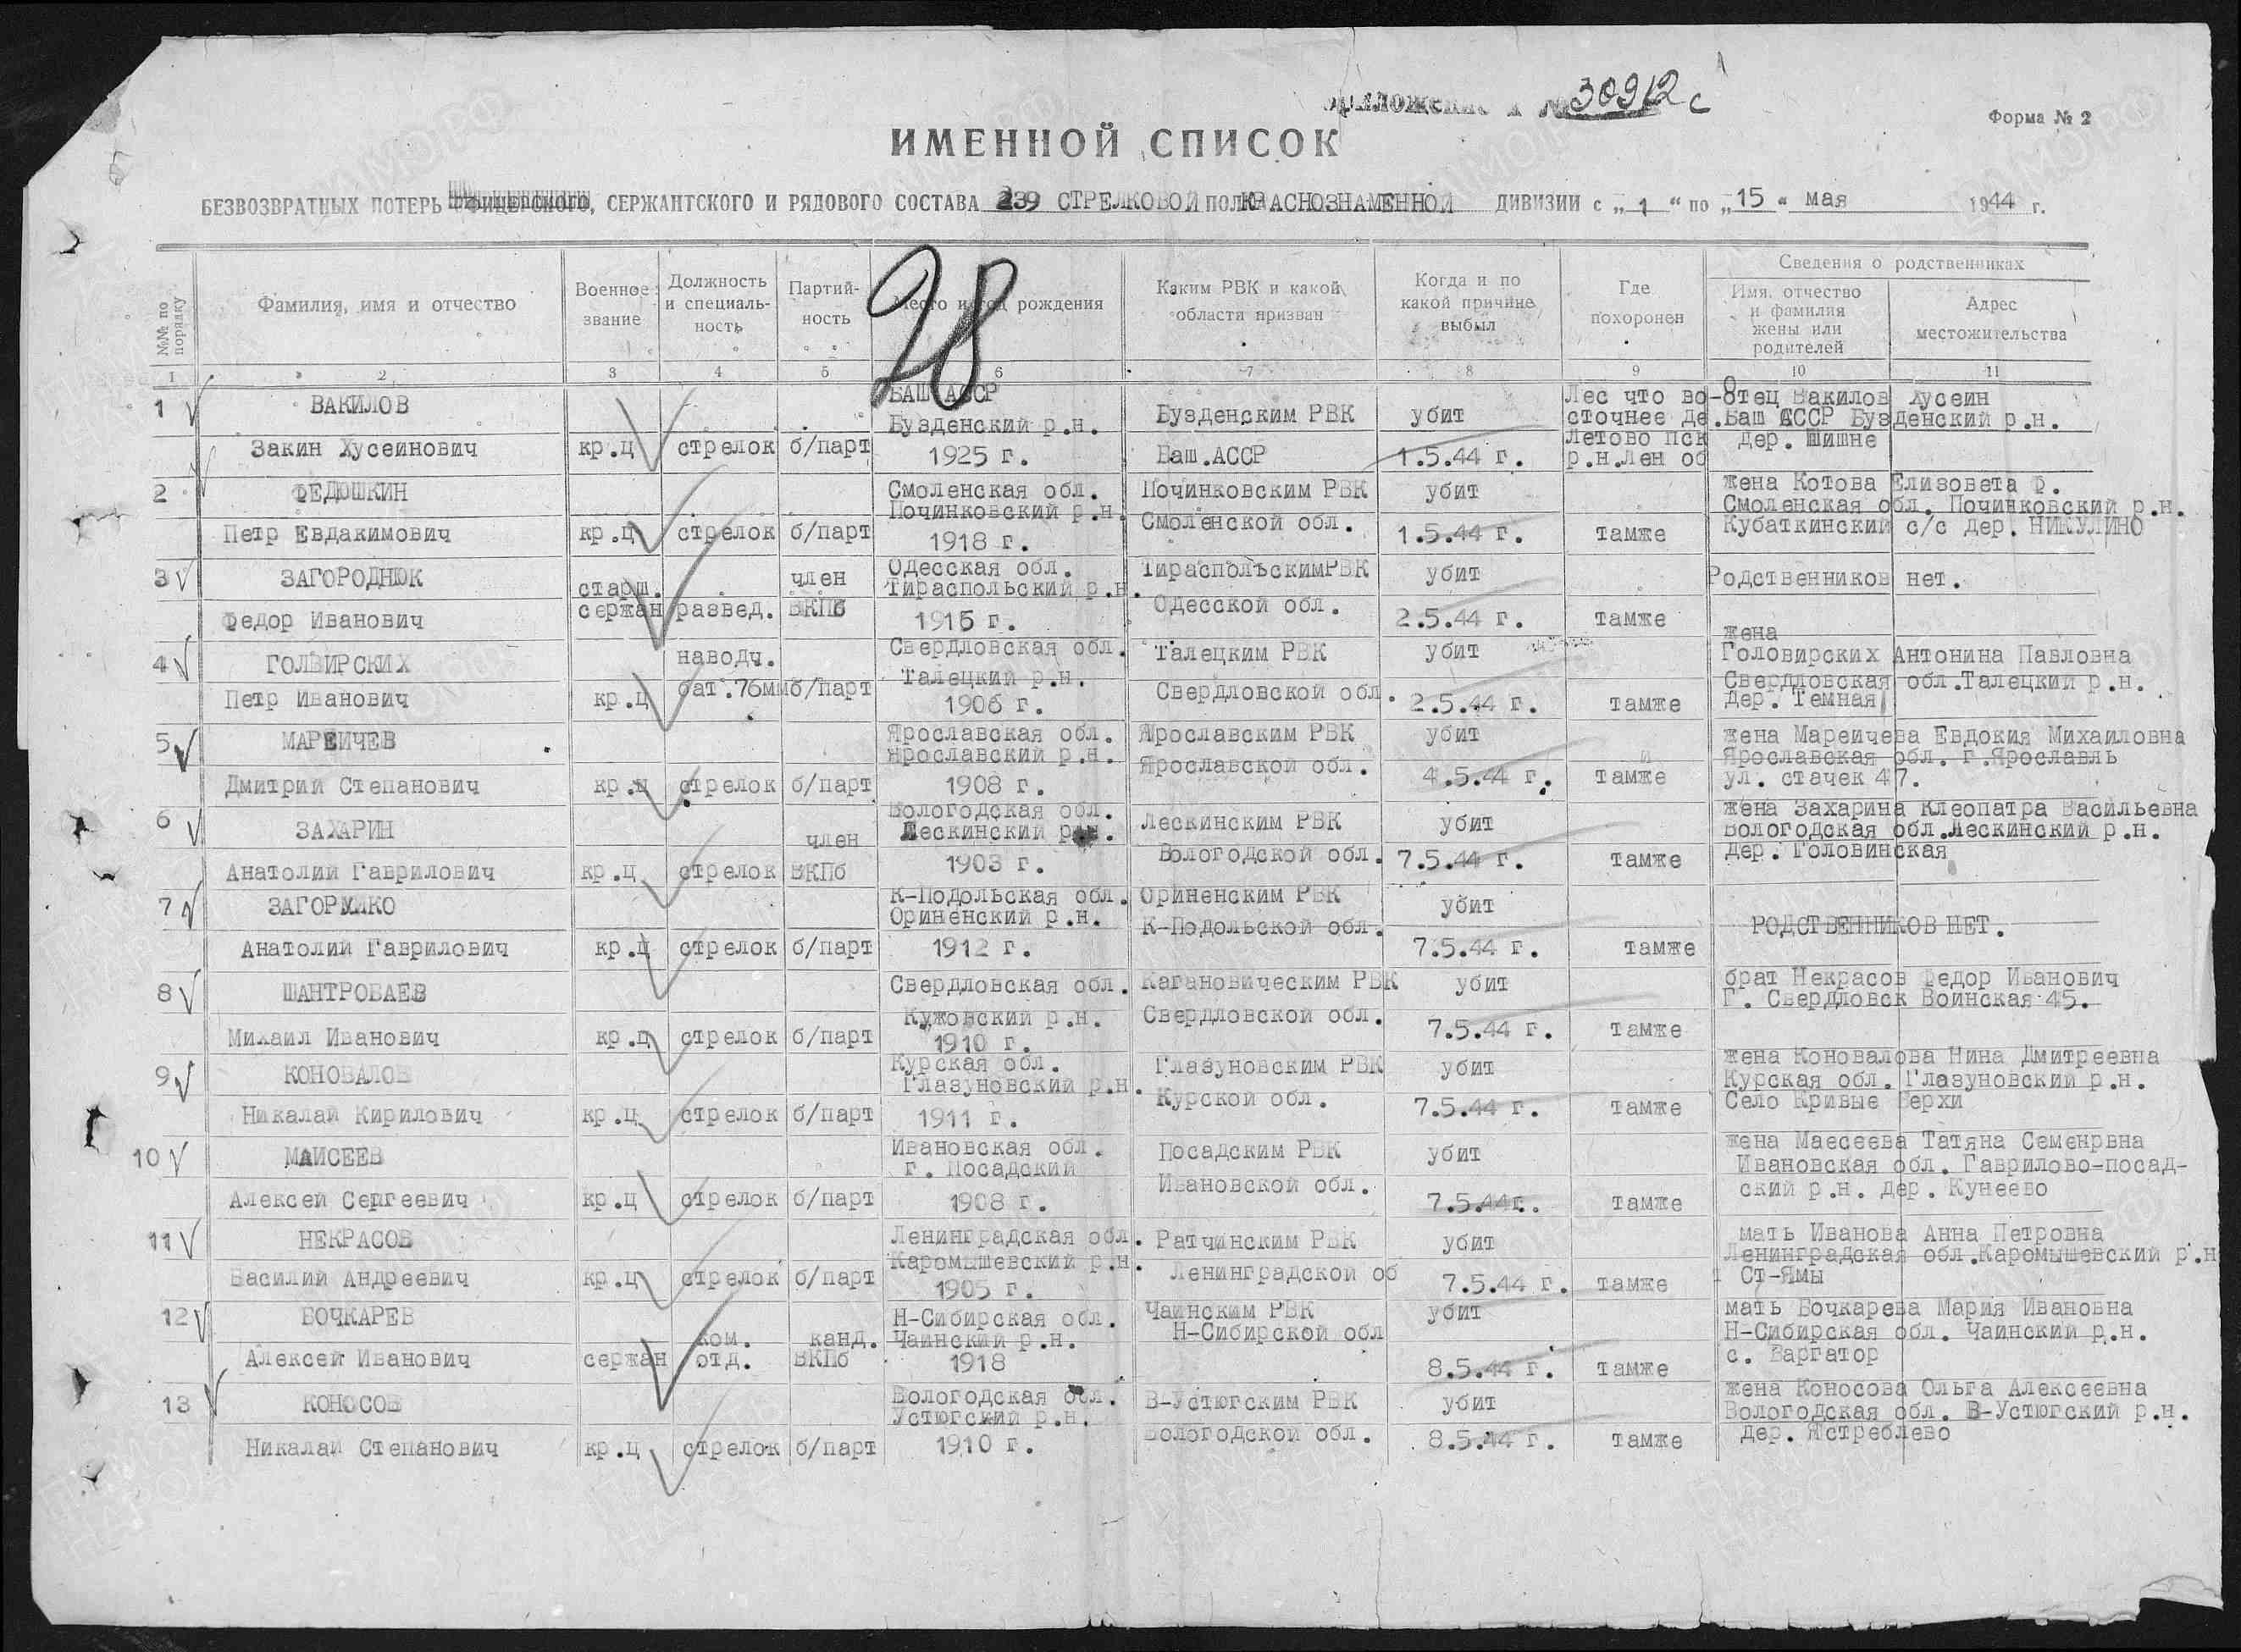 № 30912с
Форма № 2
ИМЕННОЙ СПИСОК
БЕЗВОЗВРАТНЫХ ПОТЕРЬ ОФИЦЕРСКОГО, СЕРЖАНТСКОГО И РЯДОВОГО СОСТАВА 239 СТРЕЛКОВОЙ КРАСНОЗНАМЕННОЙ ДИВИЗИИ с „1“ по „15“ мая 1944 г.
28
№№ по порядку
Фамилия, имя и отчество
Военное звание
Должность и специальность
Партийность
Место и год рождения
Каким РВК и какой области призван
Когда и по какой причине выбыл
Где похоронен
Сведения о родственниках
Имя, отчество и фамилия жены или родителей
Адрес местожительства
1 2 3 4 5 6 7 8 9 10 11
1 ВАКИЛОВ БАШ АССР Бузденский р.н. Бузденским РВК убит Лес что восточнее де. отец Вакилов Хусеин Баш АССР Бузденский р.н.
Закин Хусеинович кр.ц стрелок б/парт 1925 г. Баш.АССР 1.5.44 г. Летово Пск р.н.Лен об дер. Шишне
2 ФЕДЮШКИН Смоленская обл. Починковский р.н. Починковским РВК убит жена Котова Елизовета Ф. Смоленская обл. Починковский р.н.
Петр Евдакимович кр.ц стрелок б/парт 1918 г. Смоленской обл. 1.5.44 г. тамже Кубаткинский с/с дер. НИКУЛИНО
3 ЗАГОРОДНЮК старш. член Одесская обл. Тираспольский р.н. ТираспольскимРВК убит Родственников нет.
Федор Иванович сержан развед. ВКПб 1915 г. Одесской обл. 2.5.44 г. тамже
4 ГОЛВИРСКИХ наводч. Свердловская обл. Талецкий р.н. Талецким РВК убит жена Головирских Антонина Павловна
Петр Иванович кр.ц бат.76мм б/парт 1906 г. Свердловской обл. 2.5.44 г. тамже Свердловская обл.Талецкий р.н. дер. Темная
5 МАРЕИЧЕВ Ярославская обл. Ярославский р.н. Ярославским РВК убит жена Мареичева Евдокия Михаиловна
Дмитрий Степанович кр.ц стрелок б/парт 1908 г. Ярославской обл. 4.5.44 г. тамже Ярославская обл. г.Ярославль ул. стачек 47.
6 ЗАХАРИН член Вологодская обл. Лескинский р.н. Лескинским РВК убит жена Захарина Клеопатра Васильевна Вологодская обл.Лескинский р.н.
Анатолий Гаврилович кр.ц стрелок ВКПб 1903 г. Вологодской обл. 7.5.44 г. тамже дер. Головинская
7 К-Подольская обл. Ориненский р.н. Ориненским РВК убит РОДСТВЕННИКОВ НЕТ.
Анатолий Гаврилович кр.ц стрелок б/парт 1912 г. К-Подольской обл. 7.5.44 г. тамже
8 ШАНТРОБАЕВ Свердловская обл. Кагановическим РВК убит брат Некрасов Федор Иванович Г. Свердловск Воинская 45.
Михаил Иванович кр.ц стрелок б/парт Кужовский р.н. 1910 г. Свердловской обл. 7.5.44 г. тамже
9 КОНОВАЛОВ Курская обл. Глазуновский р.н. Глазуновским РВК убит жена Коновалова Нина Дмитреевна Курская обл. Глазуновский р.н.
Никалай Кирилович кр.ц стрелок б/парт 1911 г. Курской обл. 7.5.44 г. тамже Село Кривые Верхи
10 МАИСЕЕВ Ивановская обл. г. Посадский Посадским РВК убит жена Маесеева Татяна Семенрвна Ивановская обл. Гаврилово-посад-
Алексей Сергеевич кр.ц стрелок б/парт 1908 г. Ивановской обл. 7.5.44г. тамже ский р.н. дер. Кунеево
11 НЕКРАСОВ Ленинградская обл. Каромышевский р.н. Ратчинским РВК убит мать Иванова Анна Петровна Ленинградская обл.Каромышевский р.н
Василий Андреевич кр.ц стрелок б/парт 1905 г. Ленинградской об 7.5.44 г. тамже Ст-Ямы
12 БОЧКАРЕВ ком. канд. Н-Сибирская обл. Чаинский р.н. Чаинским РВК убит мать Бочкарева Мария Ивановна Н-Сибирская обл. Чаинский р.н.
Алексей Иванович сержан отд. ВКПб 1918 Н-Сибирской обл 8.5.44 г. тамже с. Варгатор
13 КОНОСОВ Вологодская обл. Устюгский р.н. В-Устюгским РВК убит жена Коносова Ольга Алексеевна Вологодская обл. В-Устюгский р.н.
Никалай Степанович кр.ц стрелок б/парт 1910 г. Вологодской обл. 8.5.44 г. тамже дер. Ястреблево